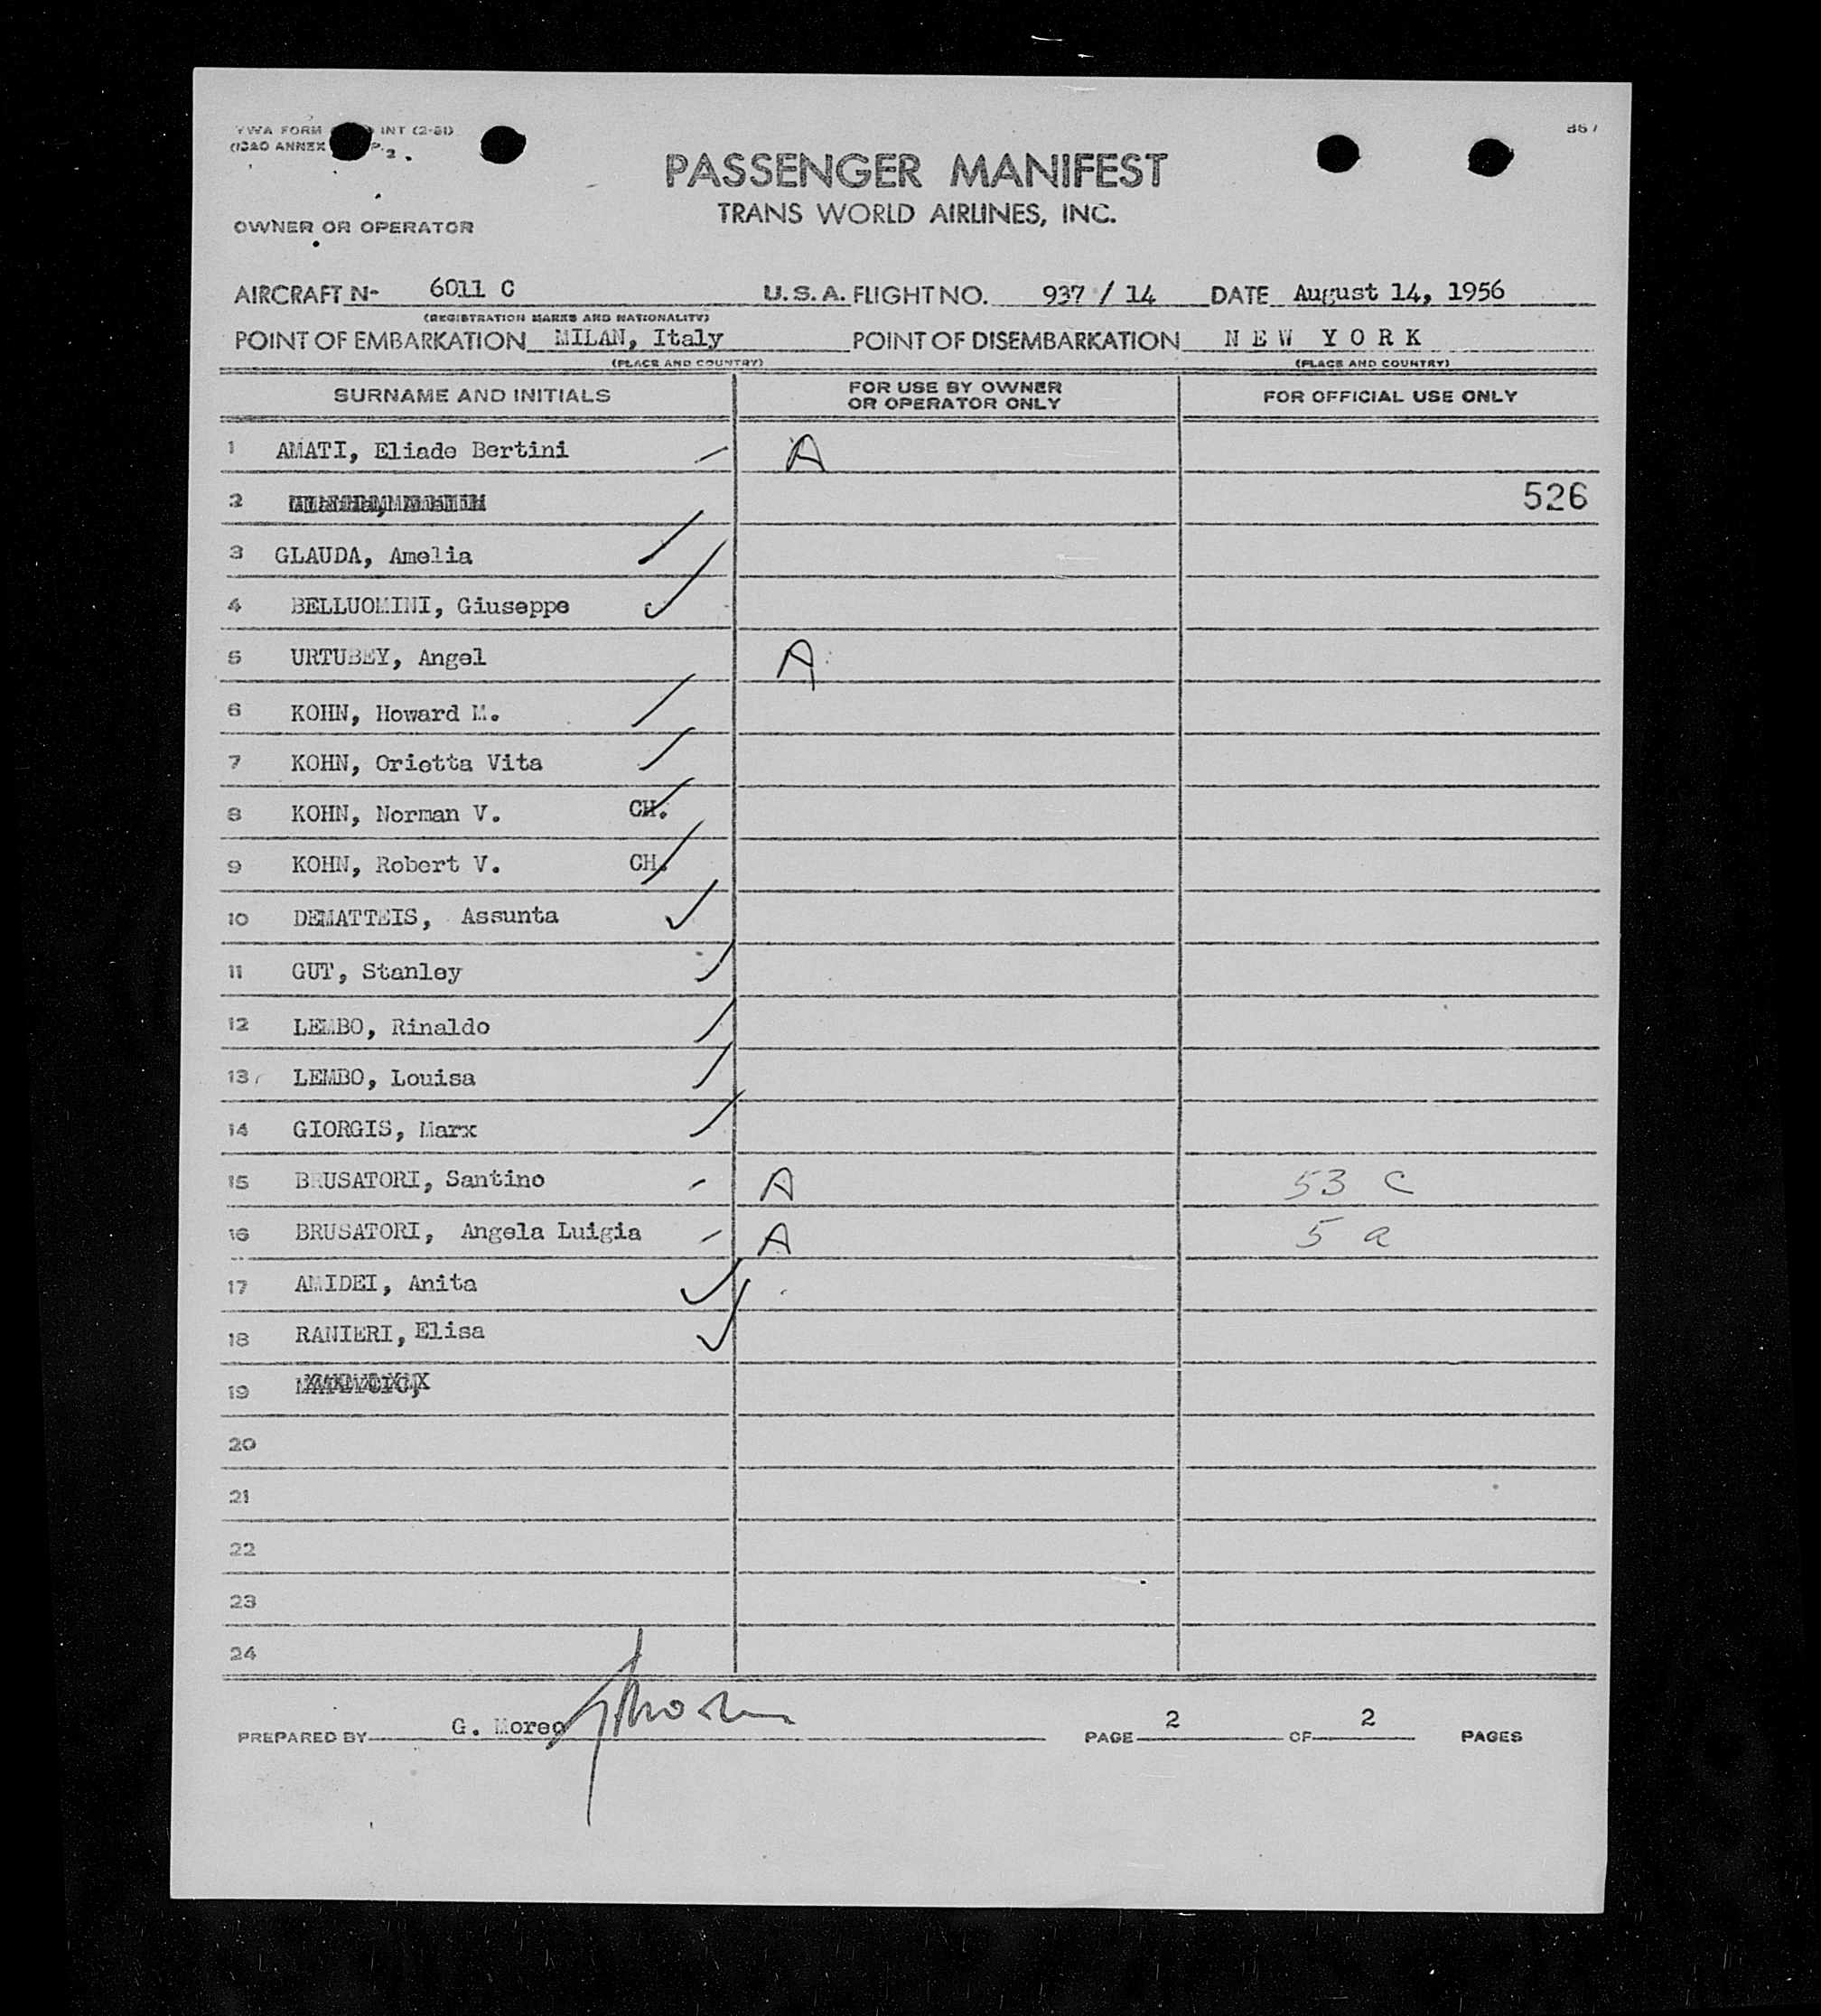 TWA FORM INT (2-51)
(ICAO ANNEX P. 2.
867
PASSENGER MANIFEST
TRANS WORLD AIRLINES, INC.
OWNER OR OPERATOR
AIRCRAFT N- 6011 C U. S. A. FLIGHT NO. 937 / 14 DATE August 14, 1956
(REGISTRATION MARKS AND NATIONALITY)
POINT OF EMBARKATION MILAN, Italy POINT OF DISEMBARKATION N E W Y O R K
(PLACE AND COUNTRY) (PLACE AND COUNTRY)
SURNAME AND INITIALS FOR USE BY OWNER OR OPERATOR ONLY FOR OFFICIAL USE ONLY
1 AMATI, Eliade Bertini A
2 526
3 GLAUDA, Amelia
4 BELLUOMINI, Giuseppe
5 URTUBEY, Angel A
6 KOHN, Howard M.
7 KOHN, Orietta Vita
8 KOHN, Norman V. CH.
9 KOHN, Robert V. CH.
10 DEMATTEIS, Assunta
11 GUT, Stanley
12 LEMBO, Rinaldo
13 LEMBO, Louisa
14 GIORGIS, Marx
15 BRUSATORI, Santino A 53 C
16 BRUSATORI, Angela Luigia A 5 a
17 AMIDEI, Anita
18 RANIERI, Elisa
19
20
21
22
23
24
PREPARED BY G. Moreo PAGE 2 OF 2 PAGES